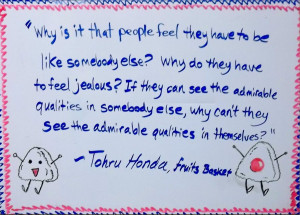 "Why is it that people feel they have to be
like somebody else? Why do they have
to feel jealous? If they can see the admirable
qualities in somebody else, why can't they
see the admirable qualities in themselves?"
~ Tohru Honda, Fruits Basket